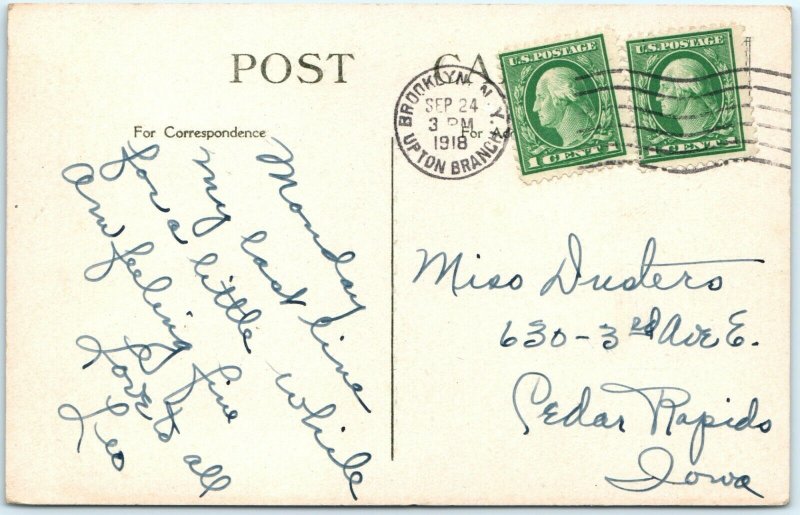 POST CA
For Correspondence
For Ad
BROOKLYN, N.Y.
SEP 24
3 PM
1918
UPTON BRANCH
U.S. POSTAGE
1 CENT 1
U.S. POSTAGE
CENT
Monday
my last line
for a little while
am feeling fine
Love to all
Leo
Miss Dusters
630-3rd Ave E.
Cedar Rapids
Iowa